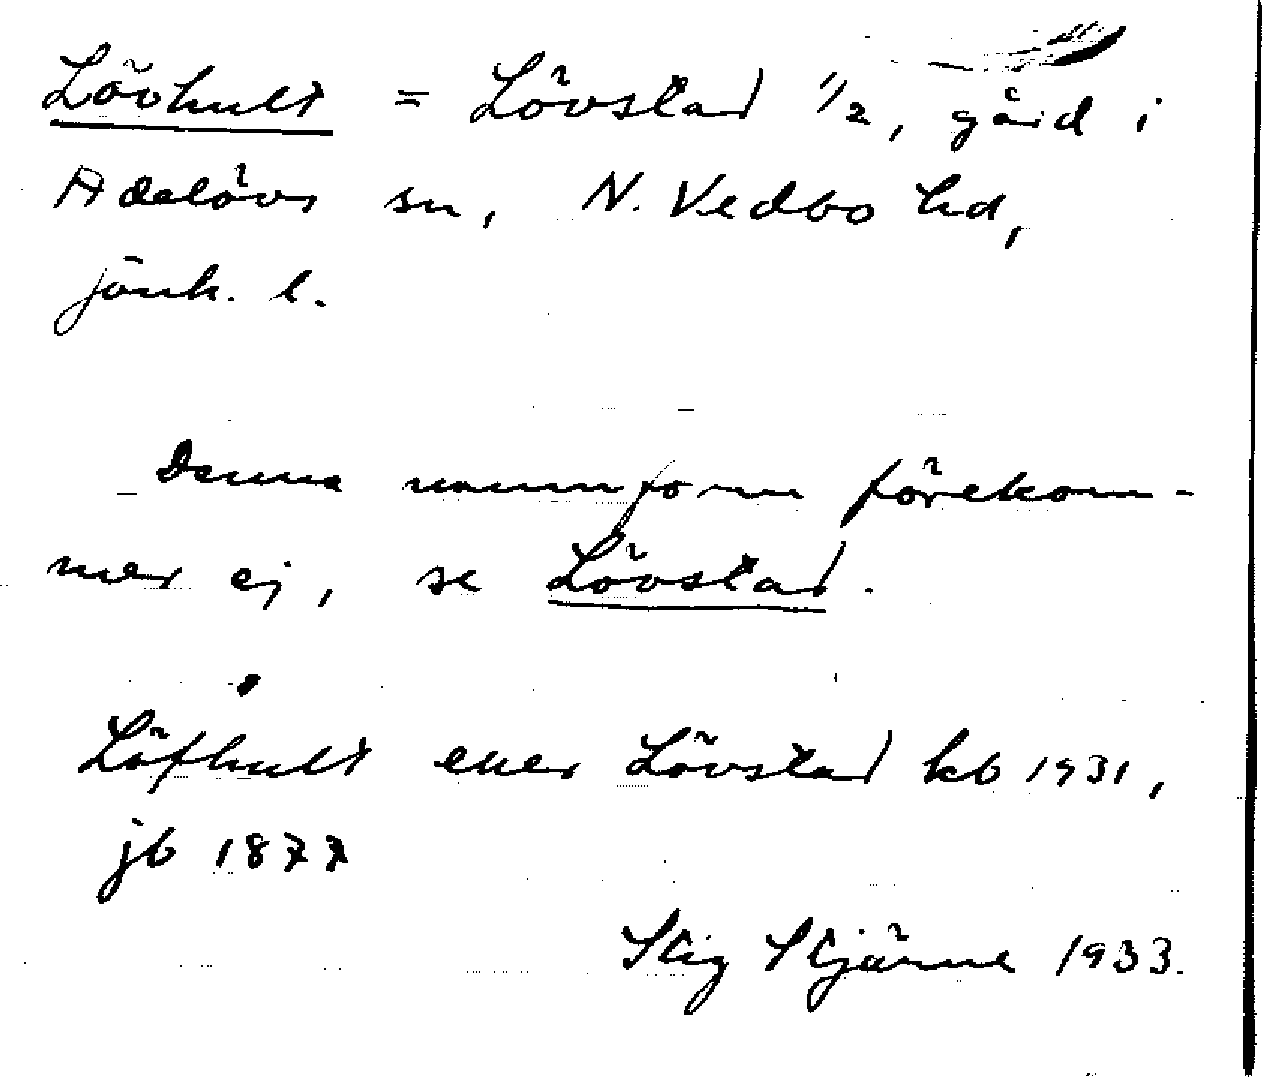 Lövhult = Lövstad 1/2, gård i
Adelövs sn, N. Vedbo hd,
Jönk. l.
Denna namnform förekom-
mer ej, se Lövstad.
Löfhult eller Lövstad kb 1931,
jb 1877
Stig Stjärne 1933.